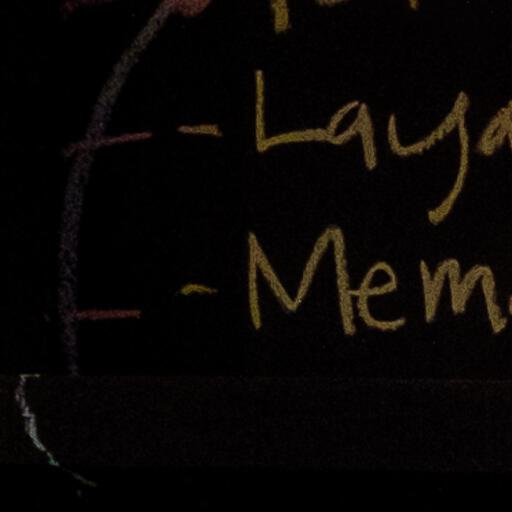 - Laya
- Mem